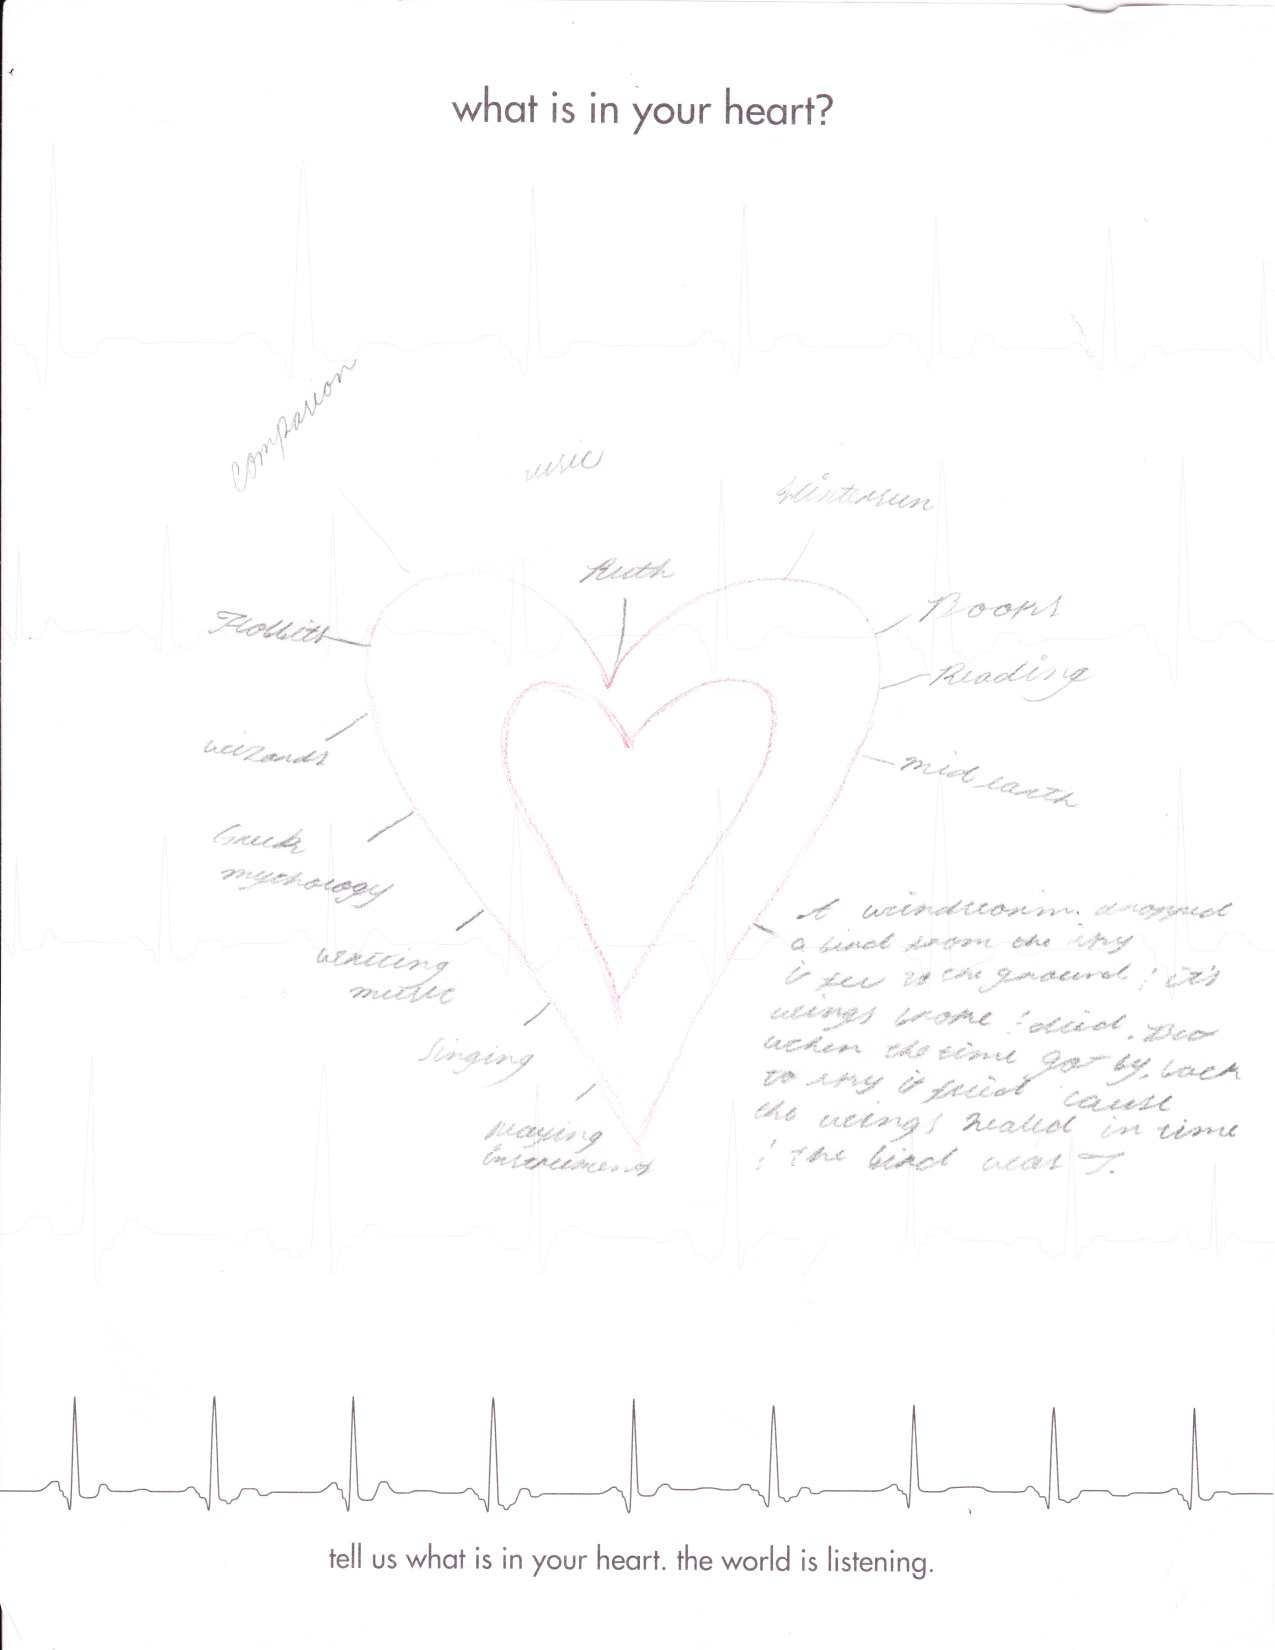 what is in your heart?
Compasion
usic
Wintersun
Ruth
Books
Hobbits
Reading
wizards
mid earth
Greek
mythology
A windstorm. dropped
a bird from the sky
it fell to the ground ! it's
wings broke ! died. But
when the time got by, back
to sky it flied cause
the wings healed in time
! The bird was I.
writing
music
Singing
playing
instruments
tell us what is in your heart. the world is listening.